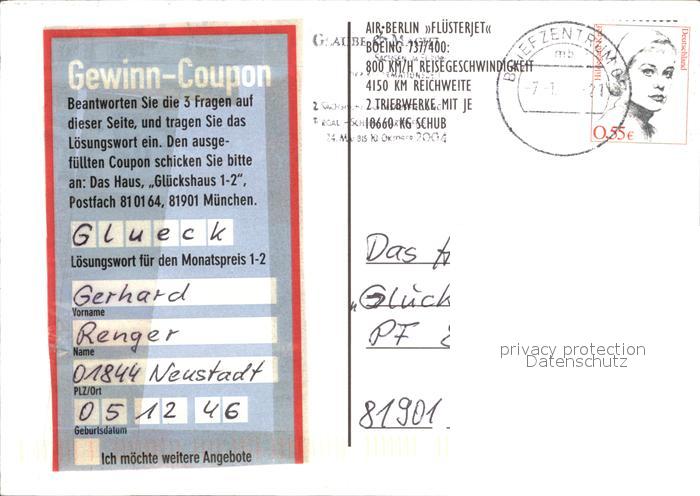 Gewinn-Coupon
Beantworten Sie die 3 Fragen auf
dieser Seite, und tragen Sie das
Lösungswort ein. Den ausge-
füllten Coupon schicken Sie bitte
an: Das Haus, „Glückshaus 1-2“,
Postfach 81 01 64, 81901 München.
Glueck
Lösungswort für den Monatspreis 1-2
Gerhard
Vorname
Renger
Name
01844 Neustadt
PLZ/Ort
05 12 46
Geburtsdatum
Ich möchte weitere Angebote
AIR-BERLIN »FLÜSTERJET«
BOEING 737/400:
800 KM/H REISEGESCHWINDIGKEIT
4150 KM REICHWEITE
2 TRIEBWERKE MIT JE
10660 KG SCHUB
2004
BRIEFZENTRUM
mb
Deutschland
0,55€
Das
„Glück
PF
81901
privacy protection
Datenschutz